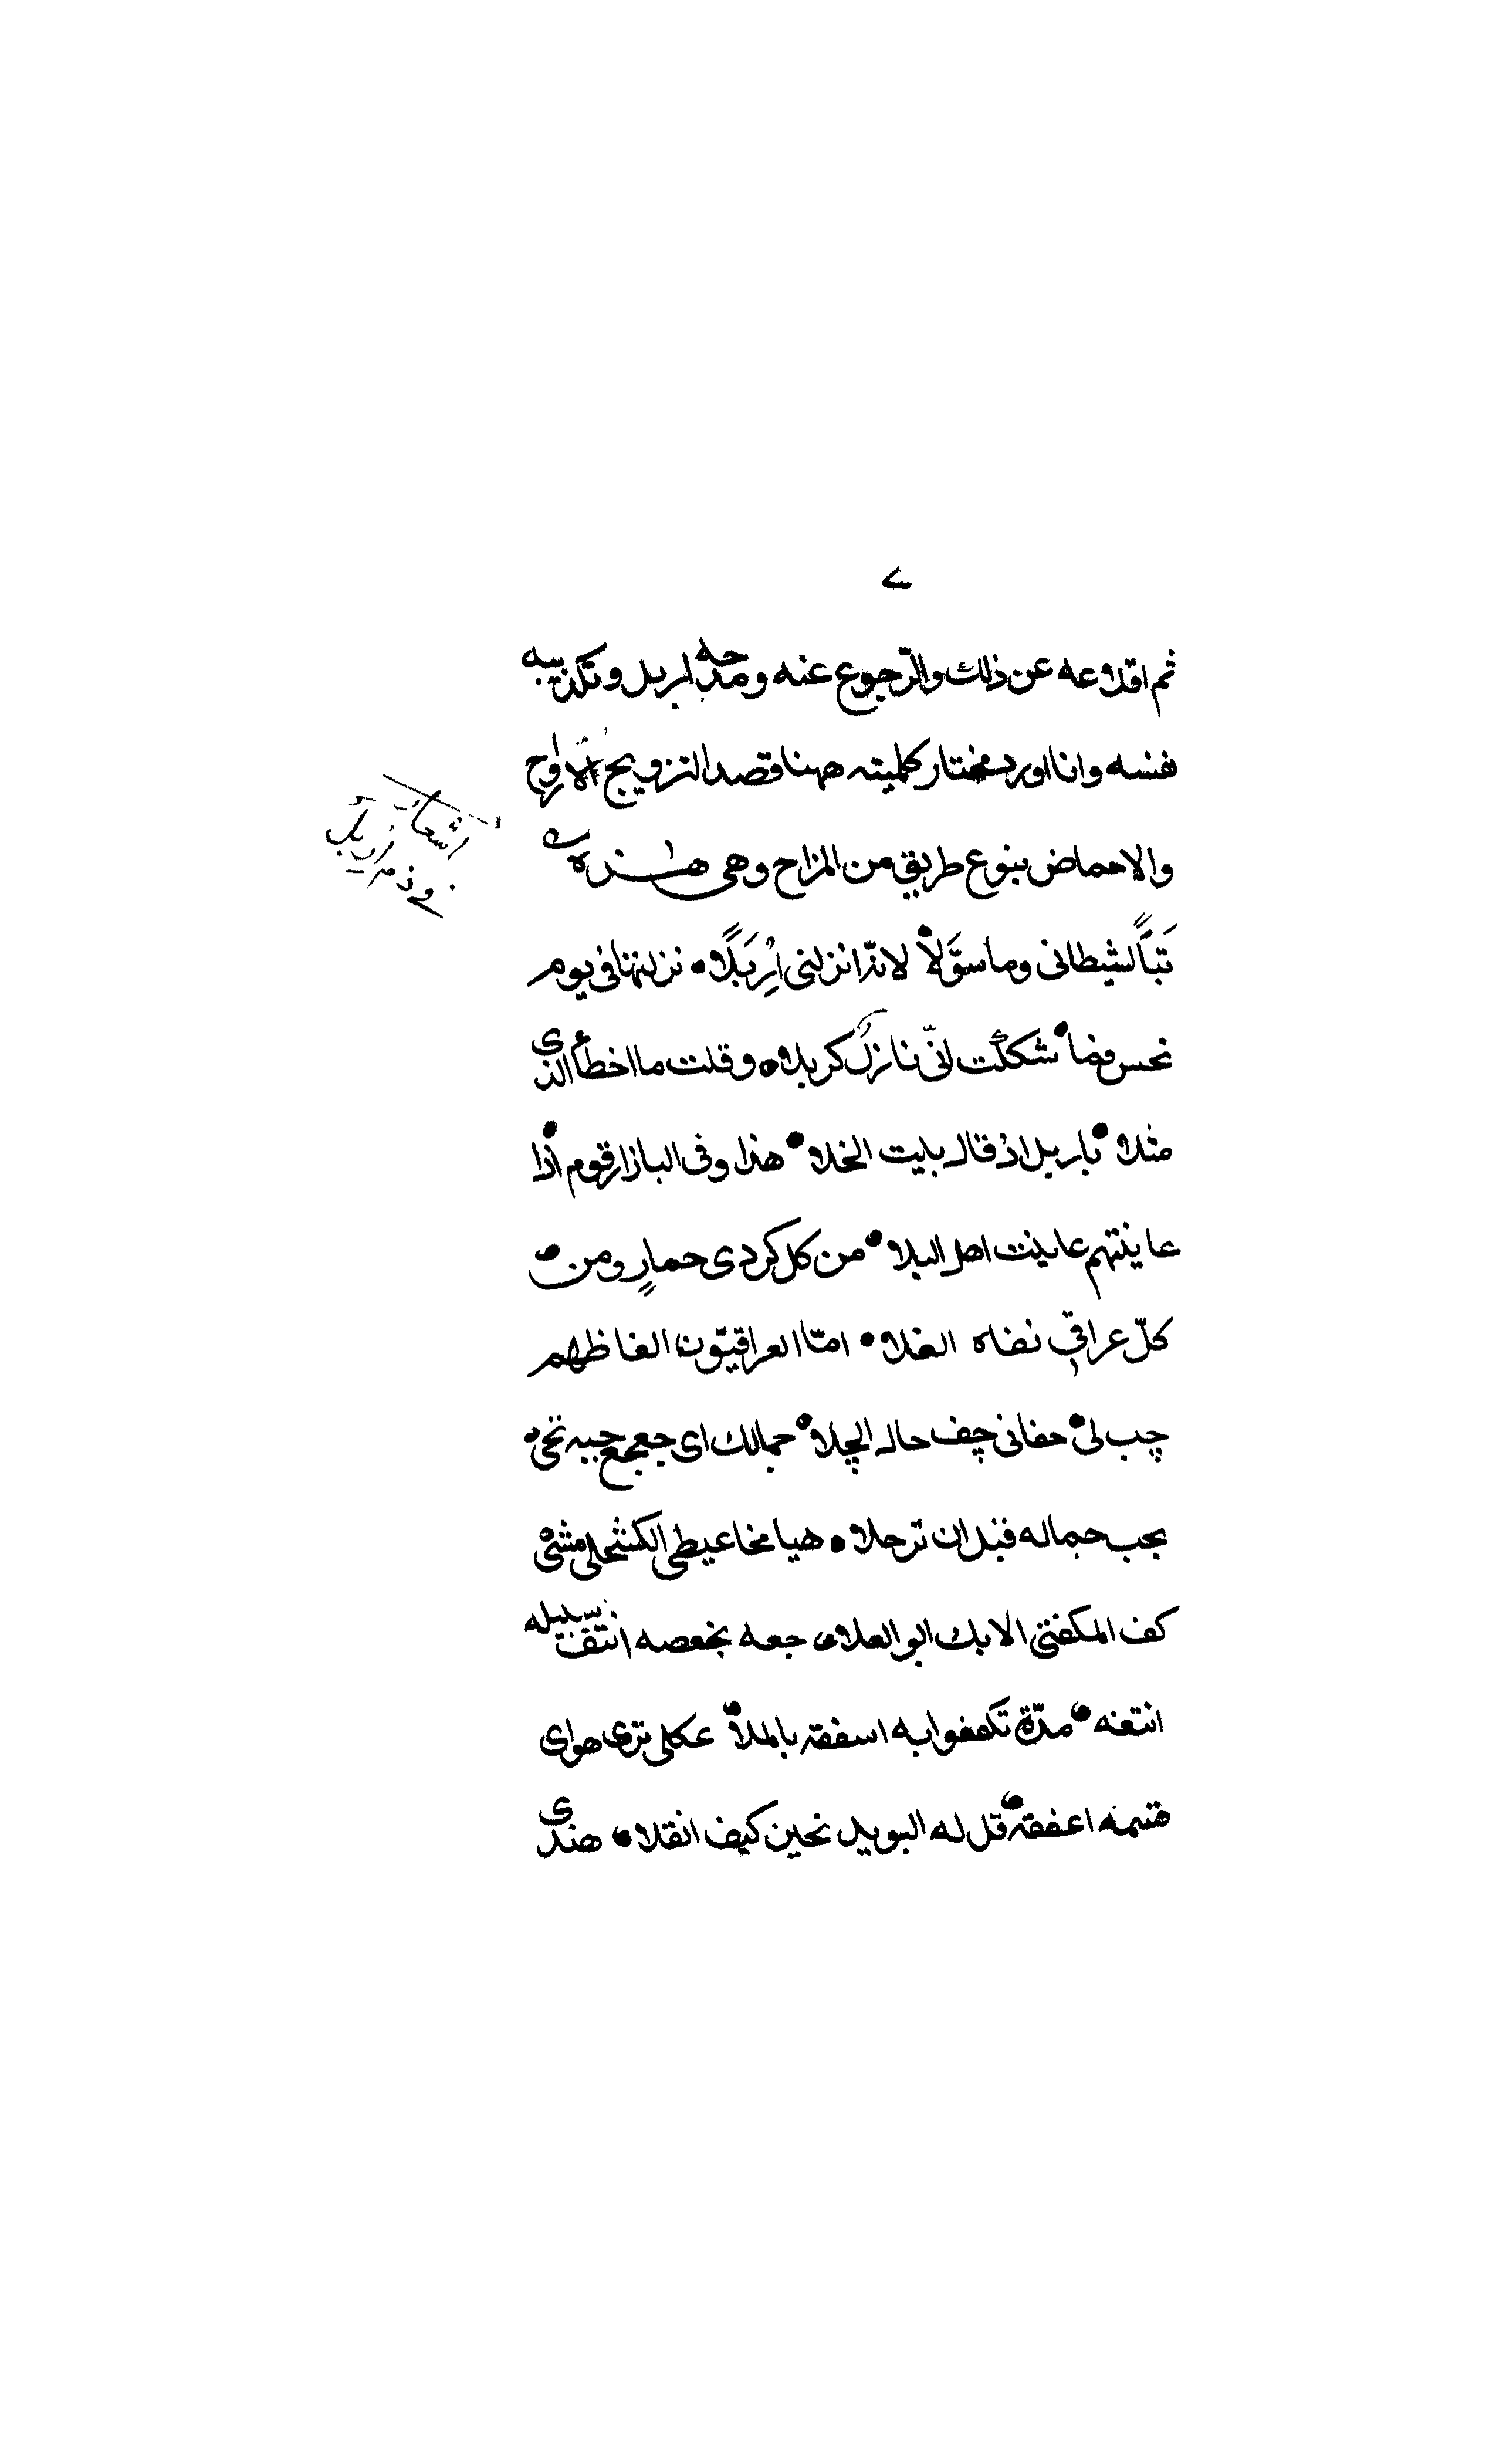 ثم اقلاعه عن ذلك والرّجوع عنه ومدحه لاربل وتكذيبه
نفسه وانا اورد مختار كلميته ههنا قصد التزويج الارواح
والاحماض بنوع طريق من المزاح وهى هٰذه
تَبّاً لشيطانى وما سوَّلاْ لانّه انزلنى اِرْبَلاً نزلتها فى يوم
نحس فما شككت انّى نازلٌ كربلا وقلت ما اخطأ الذى
مثلا باربل اذ قال بليت الخلا هذا وفى البازار قوم اذا
عاينتهم عاينت اهل البلا من كل كردى حمارٍ ومن
كلّ عراقىٍ نفاه الغلا امّا العراقيّون الفاظهم
چب لى جفانى چف حاله الچلا جمالك اى جعجع جبه تجى
يجب جماله قبل ان ترحلا هيا مخاعيطى الكشحلى مشى
كف المكفنى الابك ابو العلا جعه بجعصه انتف سبيله
انتفه مدّة تكعفوا به اسفقه بالملا عكلى ترى هواى
قسمه اعفقه قل له البويل نحين كيف انقلا هندى
اشعار
فى ذم اربل